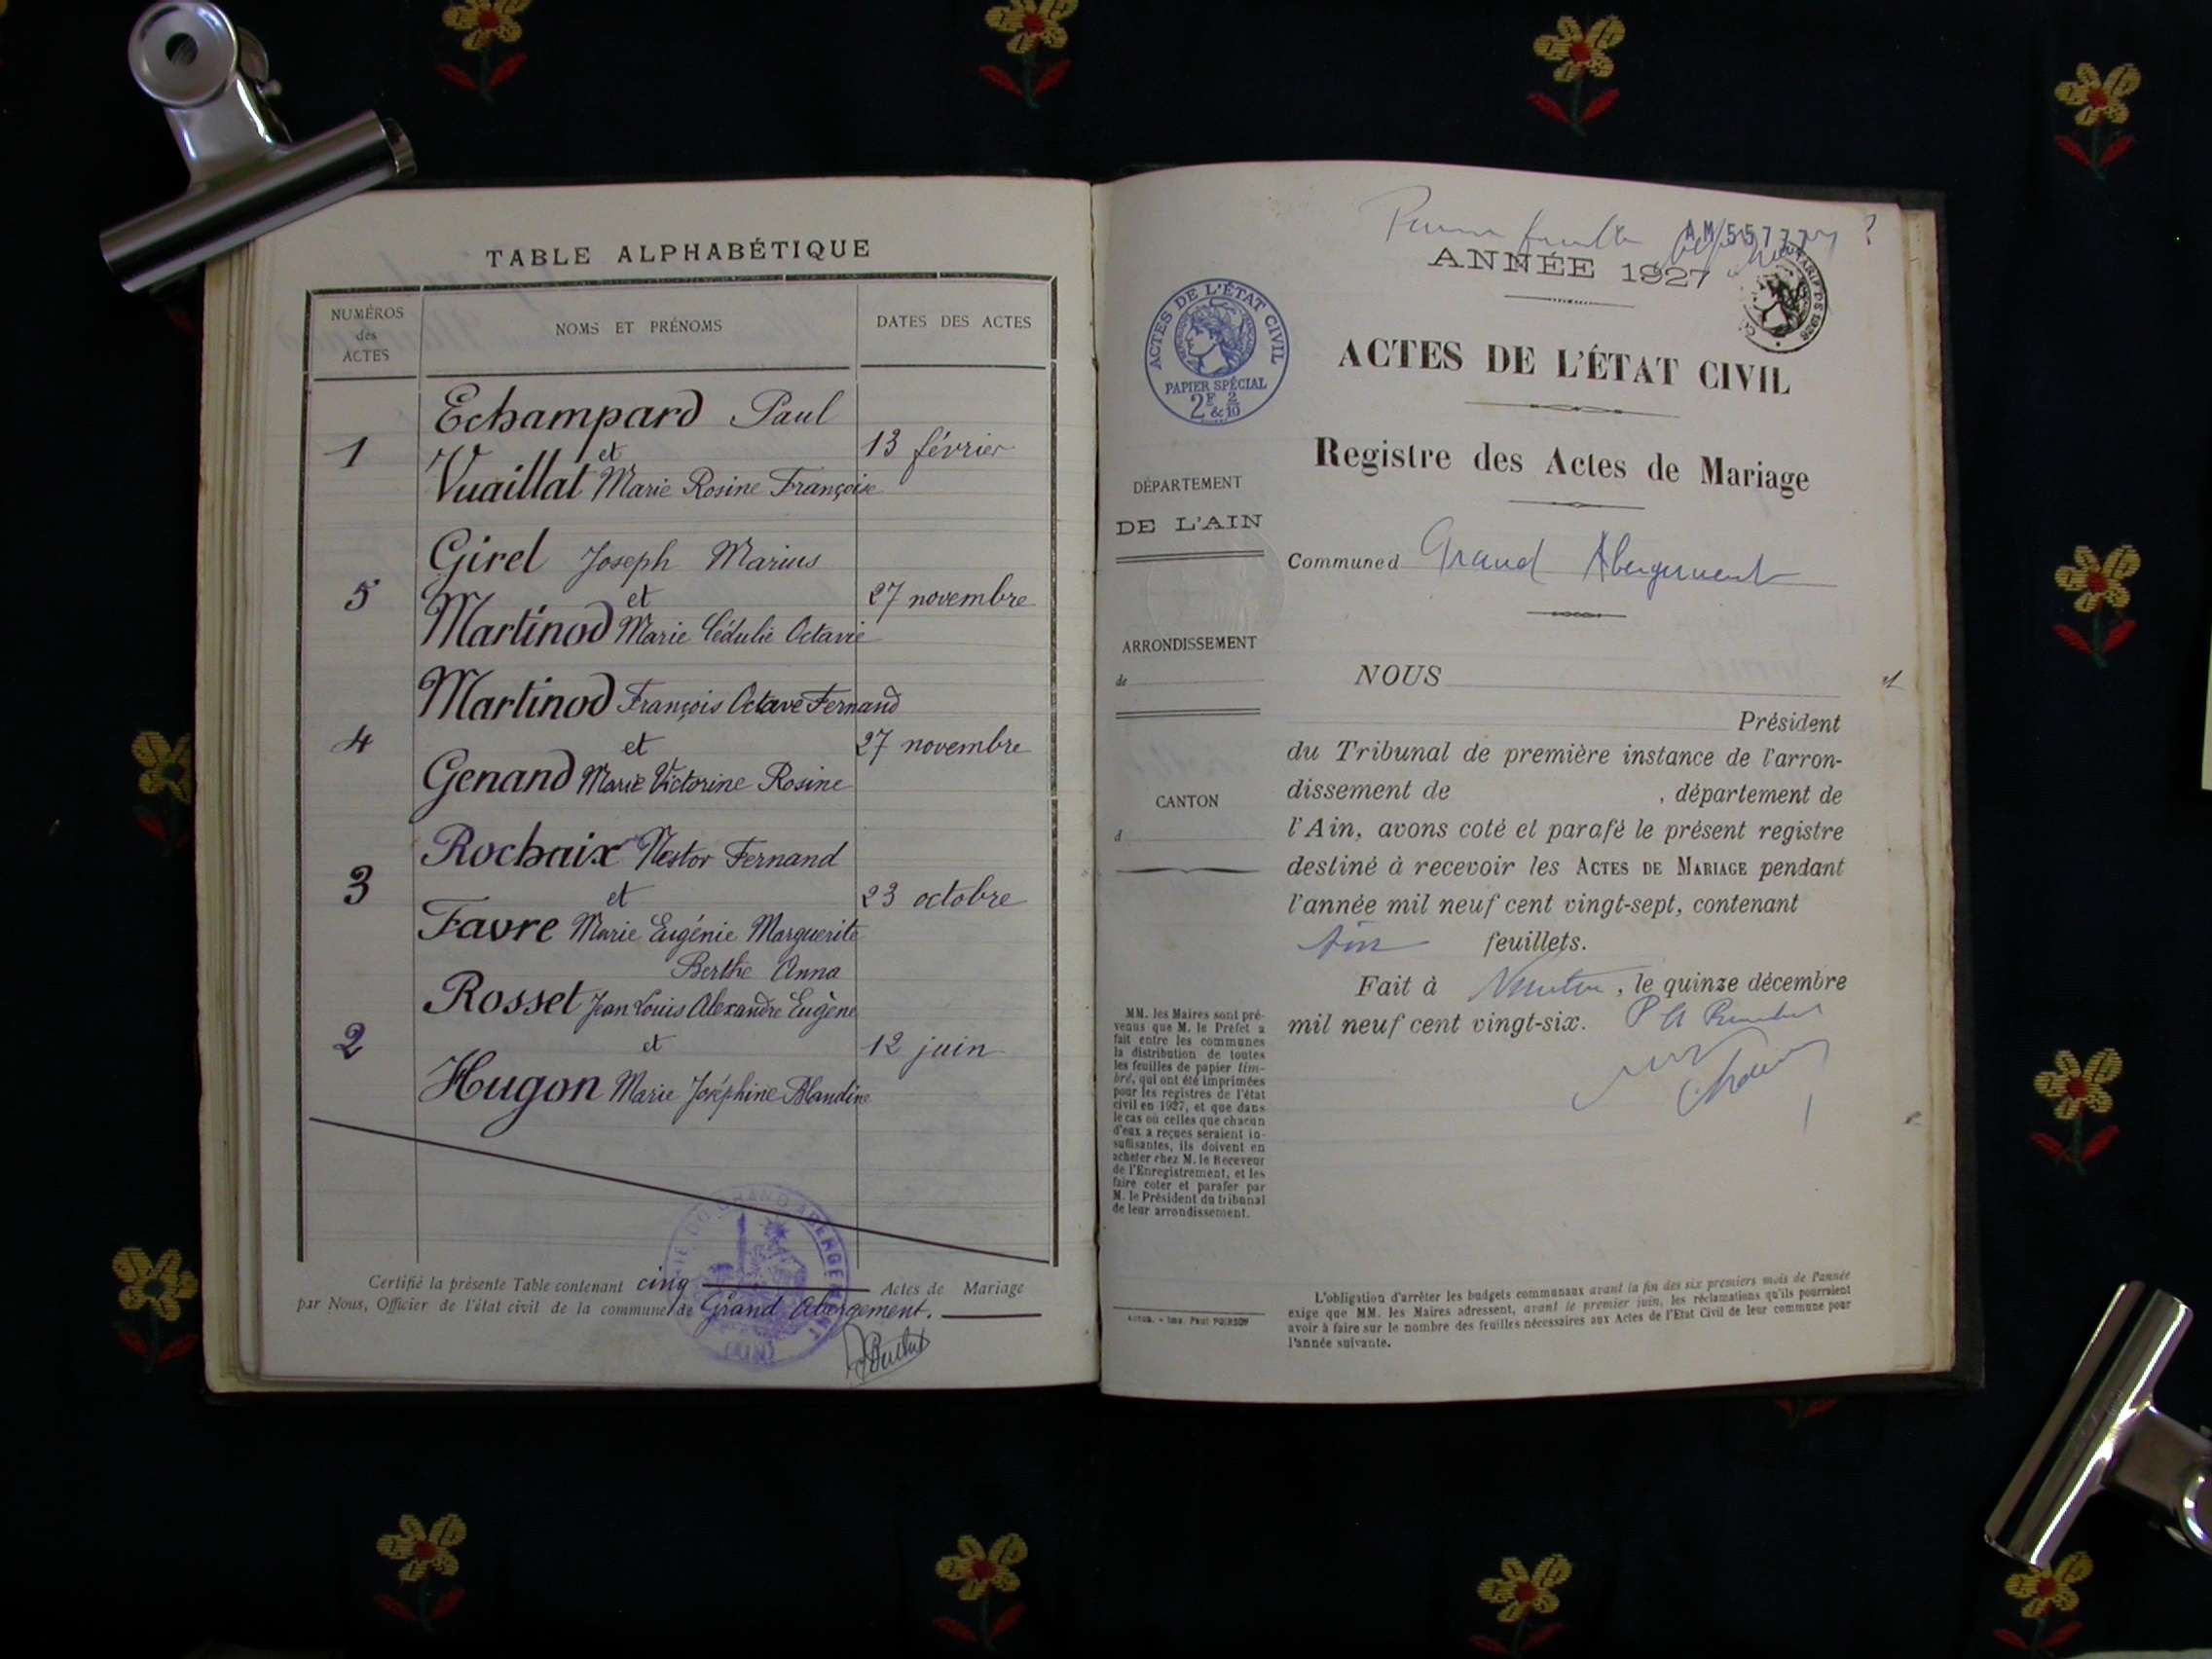 TABLE ALPHABÉTIQUE
NUMÉROS
des
ACTES
NOMS ET PRÉNOMS
DATES DES ACTES
Echampard Paul
1 et 13 février
Vuaillat Marie Rosine Françoise
Girel Joseph Marius
5 et 27 novembre
Martinod Marie Cédulie Octavie
Martinod François Octave Fernand
4 et 27 novembre
Genand Marie Victorine Rosine
Rochaix Nestor Fernand
3 et 23 octobre
Favre Marie Eugénie Marguerite
Berthe Anna
Rosset Jean Louis Alexandre Eugène
2 et 12 juin
Hugon Marie Joséphine Blandine
Certifié la présente Table contenant cinq Actes de Mariage
par Nous, Officier de l'état civil de la commune de Grand Abergement.
AM 55777
ANNÉE 1927
ACTES DE L'ÉTAT CIVIL
PAPIER SPÉCIAL
2F & 2/10
ACTES DE L'ÉTAT CIVIL
Registre des Actes de Mariage
DÉPARTEMENT
DE L'AIN
Commune d Grand Abergement
ARRONDISSEMENT
de
CANTON
d
NOUS
Président
du Tribunal de première instance de l'arron-
dissement de , département de
l'Ain, avons coté et parafé le présent registre
destiné à recevoir les ACTES DE MARIAGE pendant
l'année mil neuf cent vingt-sept, contenant
feuillets.
Fait à Nantua, le quinze décembre
mil neuf cent vingt-six.
MM. les Maires sont pré-
venus que M. le Préfet a
fait entre les communes
la distribution de toutes
les feuilles de papier tim-
bré, qui ont été imprimées
pour les registres de l'état
civil en 1927, et que dans
le cas où celles que chacun
d'eux a reçues seraient in-
suffisantes, ils doivent en
acheter chez M. le Receveur
de l'Enregistrement, et les
faire coter et parafer par
M. le Président du tribunal
de leur arrondissement.
L'obligation d'arrêter les budgets communaux avant la fin des six premiers mois de l'année
exige que MM. les Maires adressent, avant le premier juin, les réclamations qu'ils pourraient
avoir à faire sur le nombre des feuilles nécessaires aux Actes de l'Etat Civil de leur commune pour
l'année suivante.